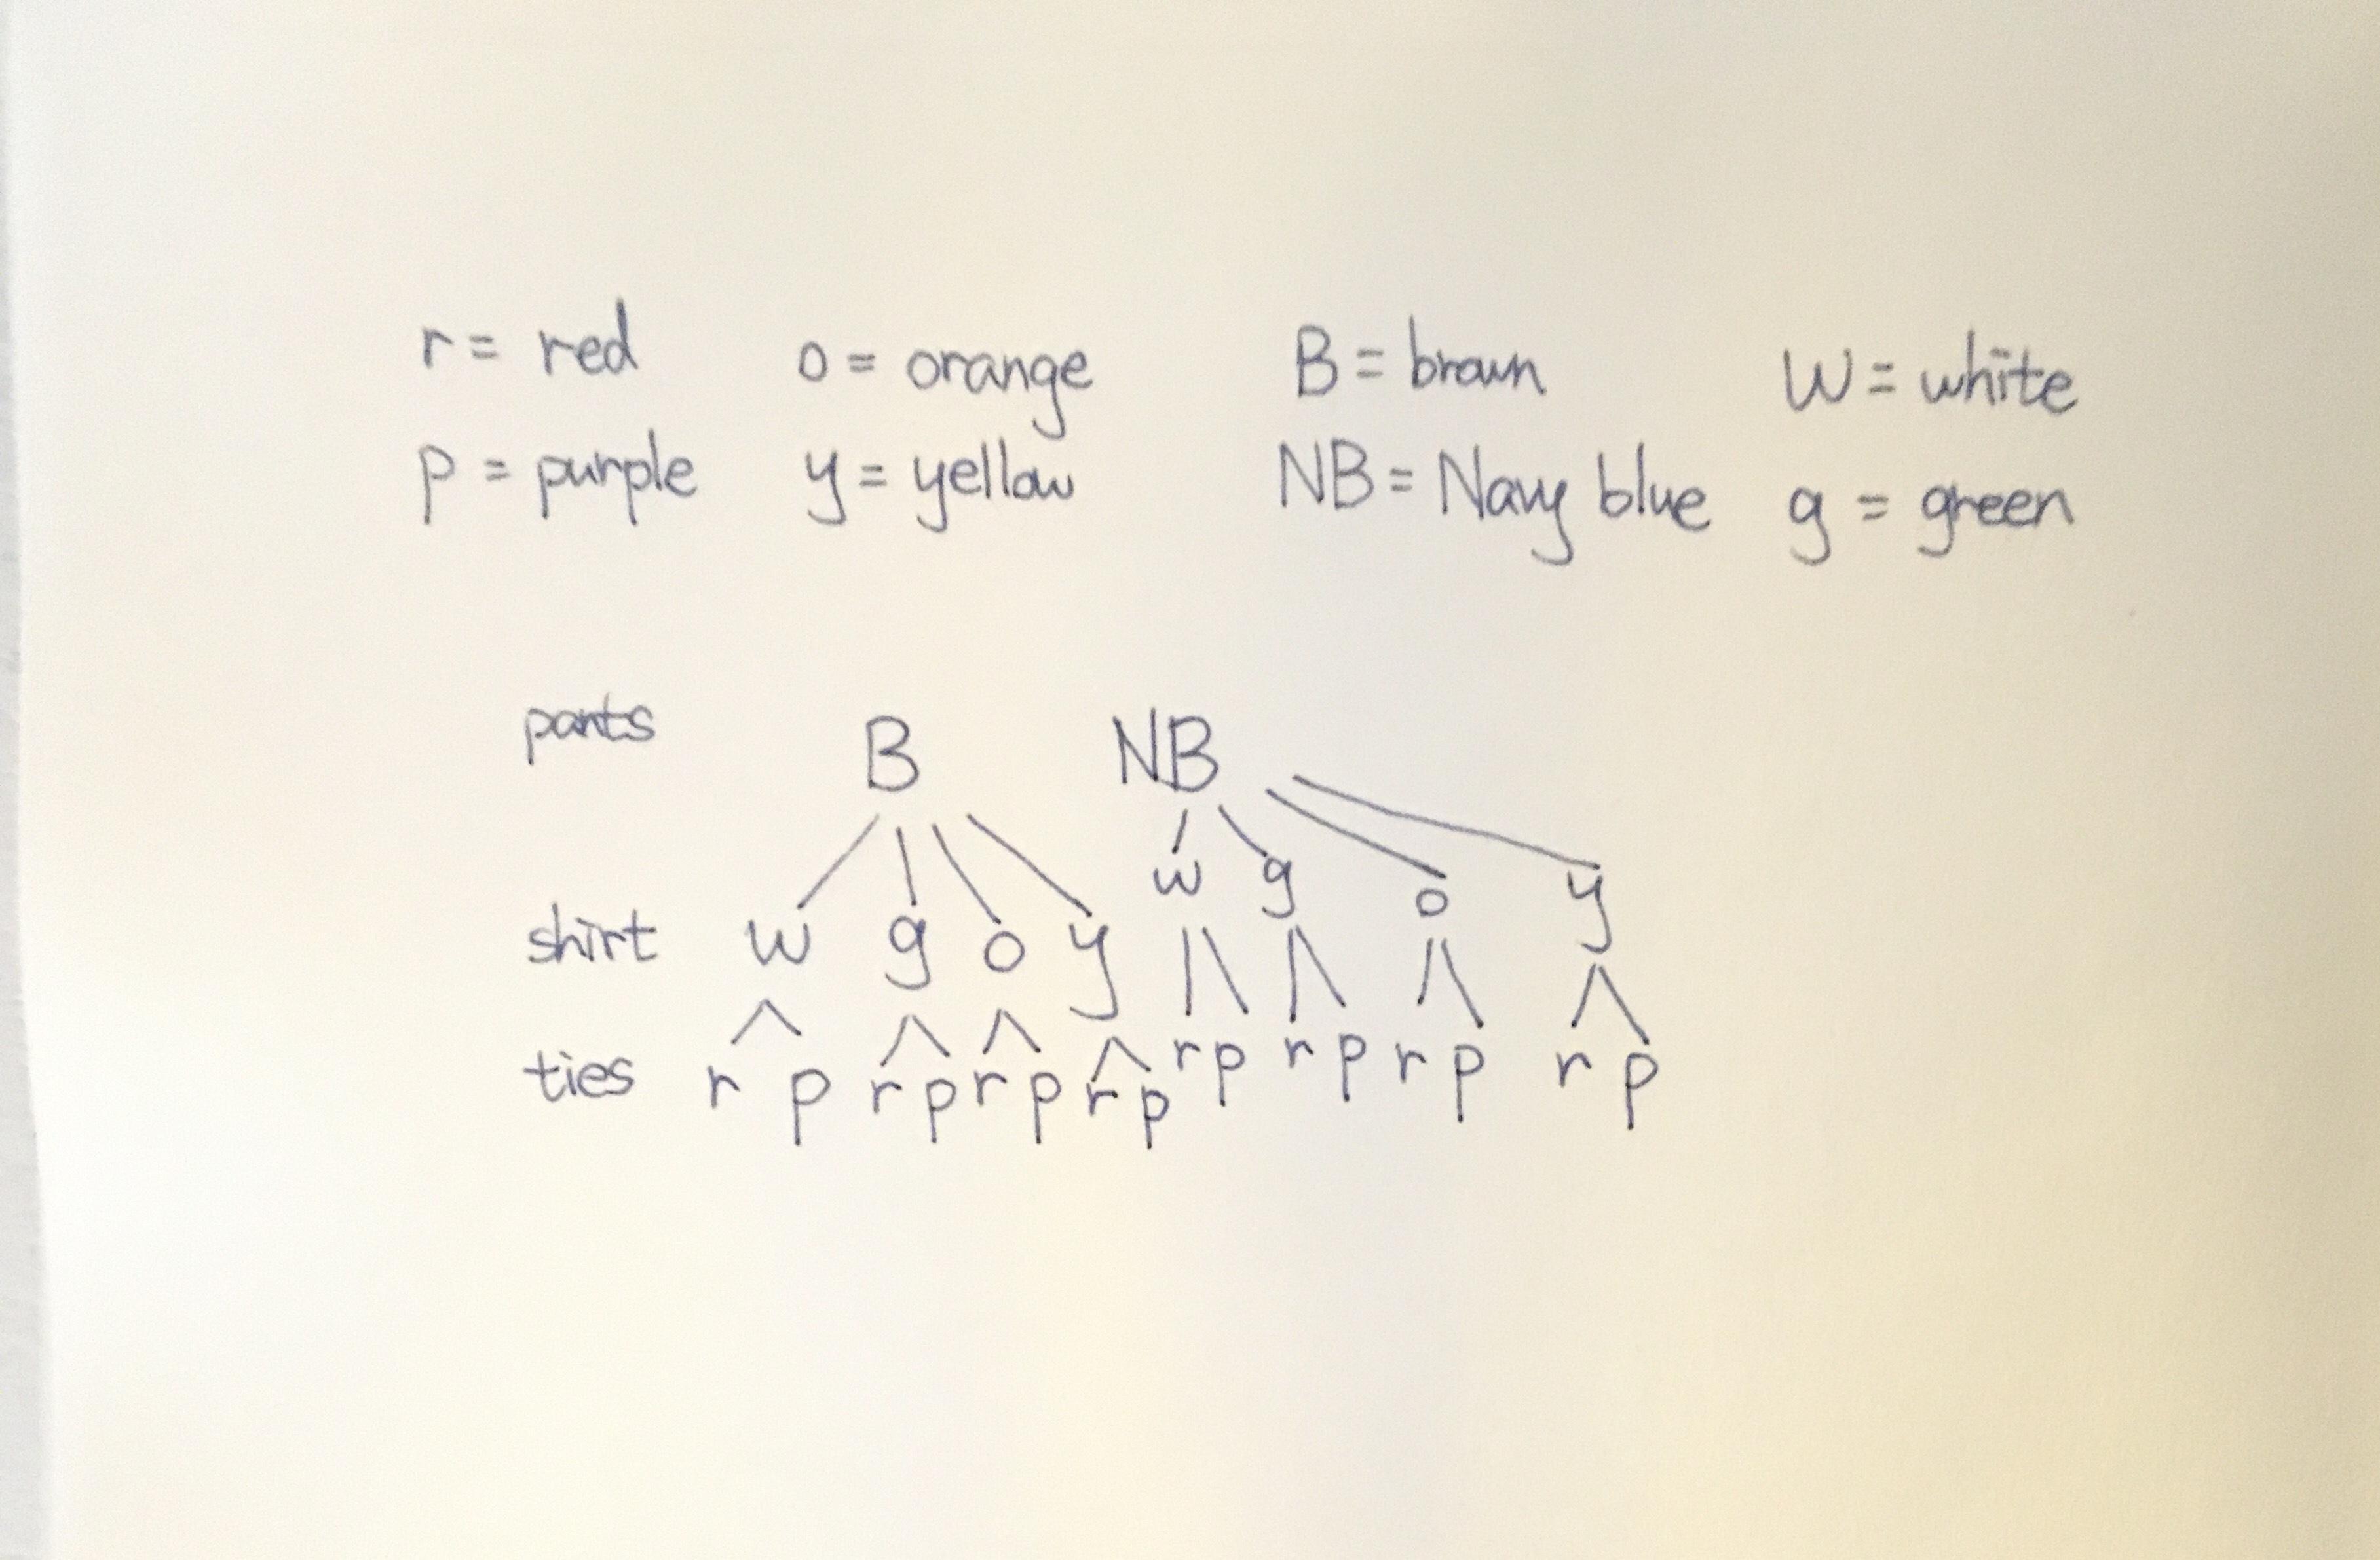 r = red o = orange B = brown W = white
p = purple y = yellow NB = Navy blue g = green
pants B NB
shirt w g o y w g o y
ties r p r p r p r p r p r p r p r p